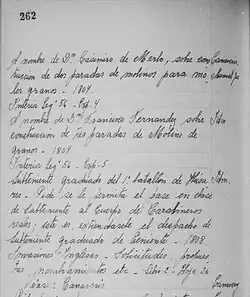 262
A nombre de Dn Casimiro de Merlo, sobre cons Canarias
trucción de dos paradas de molinos para mo
ler granos - 1804.
Interia Leg: 56 - Exp: 4
A nombre de Dn Francisco Fernandez, sobre Idm
construcción de tres paradas de Molino de
granos. - 1804
Interia Leg: 56. - Exp: 5
Subteniente graduado del 1º batallon de Idm.
res - Pide se le permita el pase en clase
de subteniente al Cuerpo de Carabineros
reales; este es, extiendasele el despacho de
Subteniente graduado de teniente. - 1818.
Invasiones Inglesas - Solicitudes,
nombramientos etc - Libro 2 - Hoja 26
Canarias